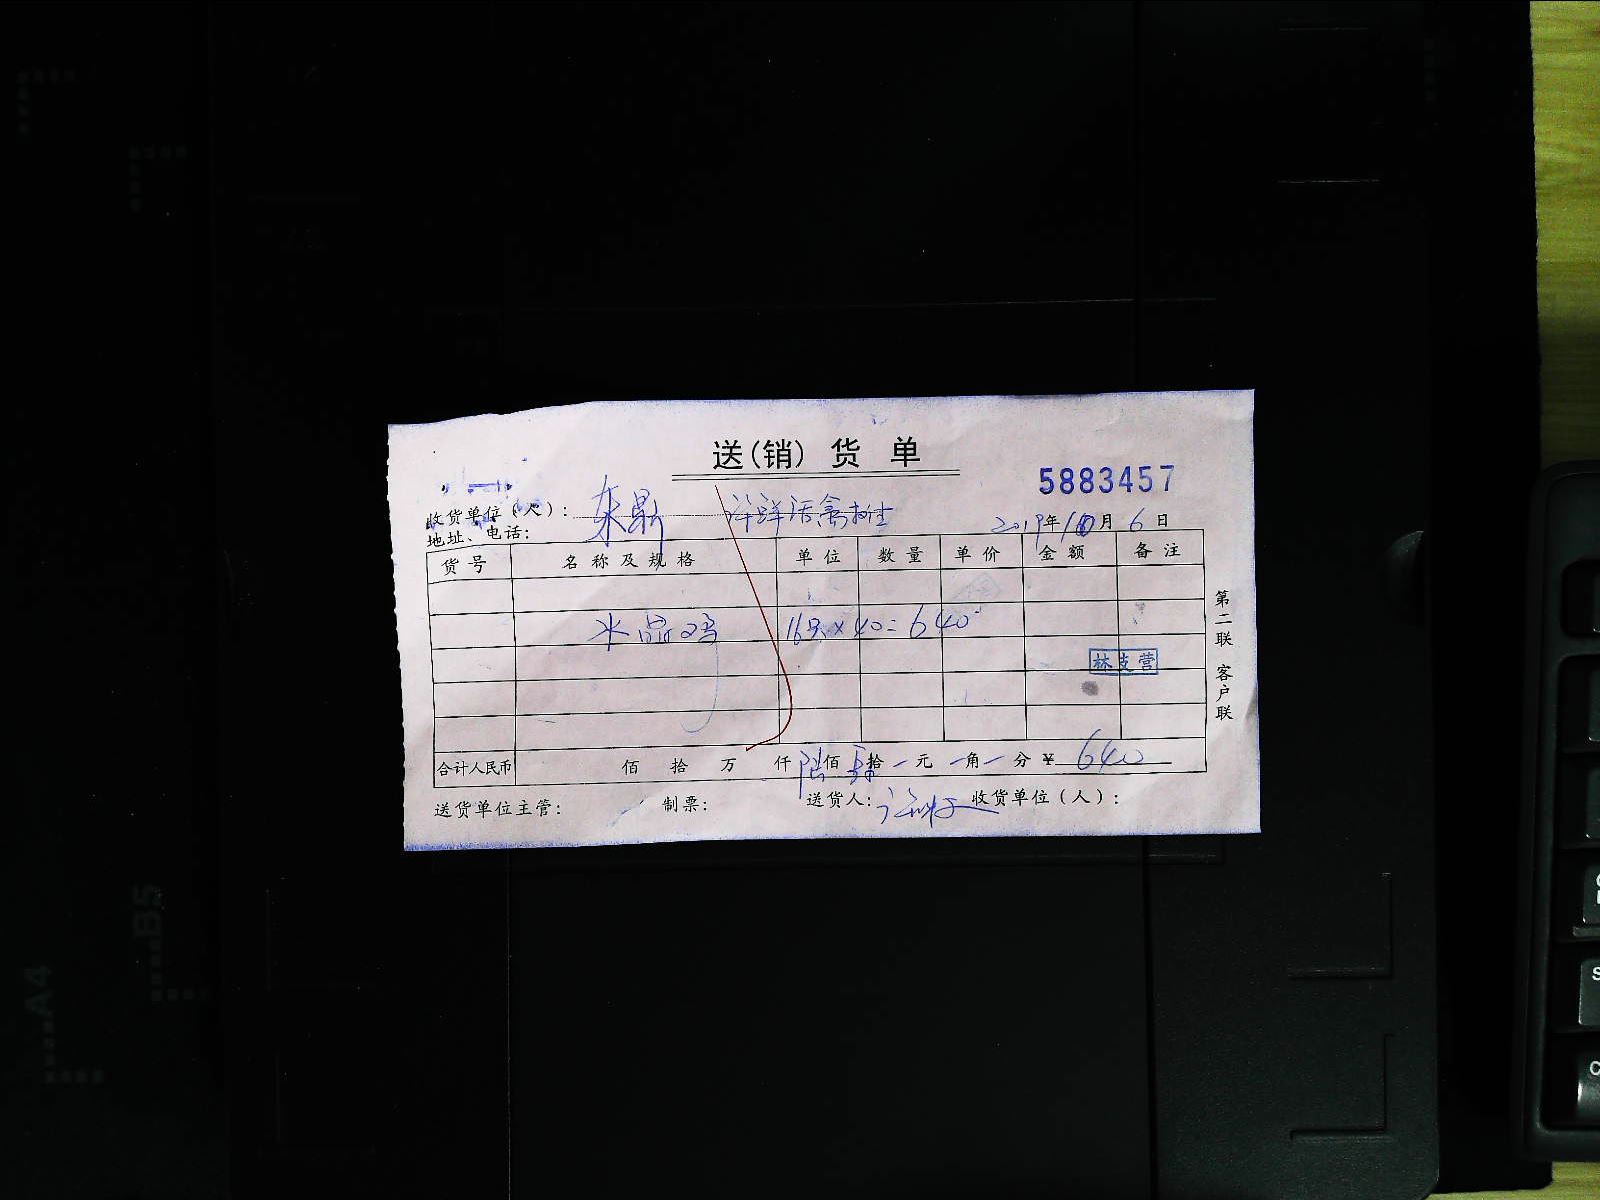 送(销)货单
5883457
收货单位(人): 东鼎 洋洋活禽
地址、电话:
2019年10月6日
货号 名称及规格 单位 数量 单价 金额 备注
水晶鸡 16只×40=640
林支营
合计人民币 佰 拾 万 仟陆佰肆拾一元一角一分¥640
送货单位主管: 制票: 送货人: 收货单位(人):
第二联 客户联
A4
B5